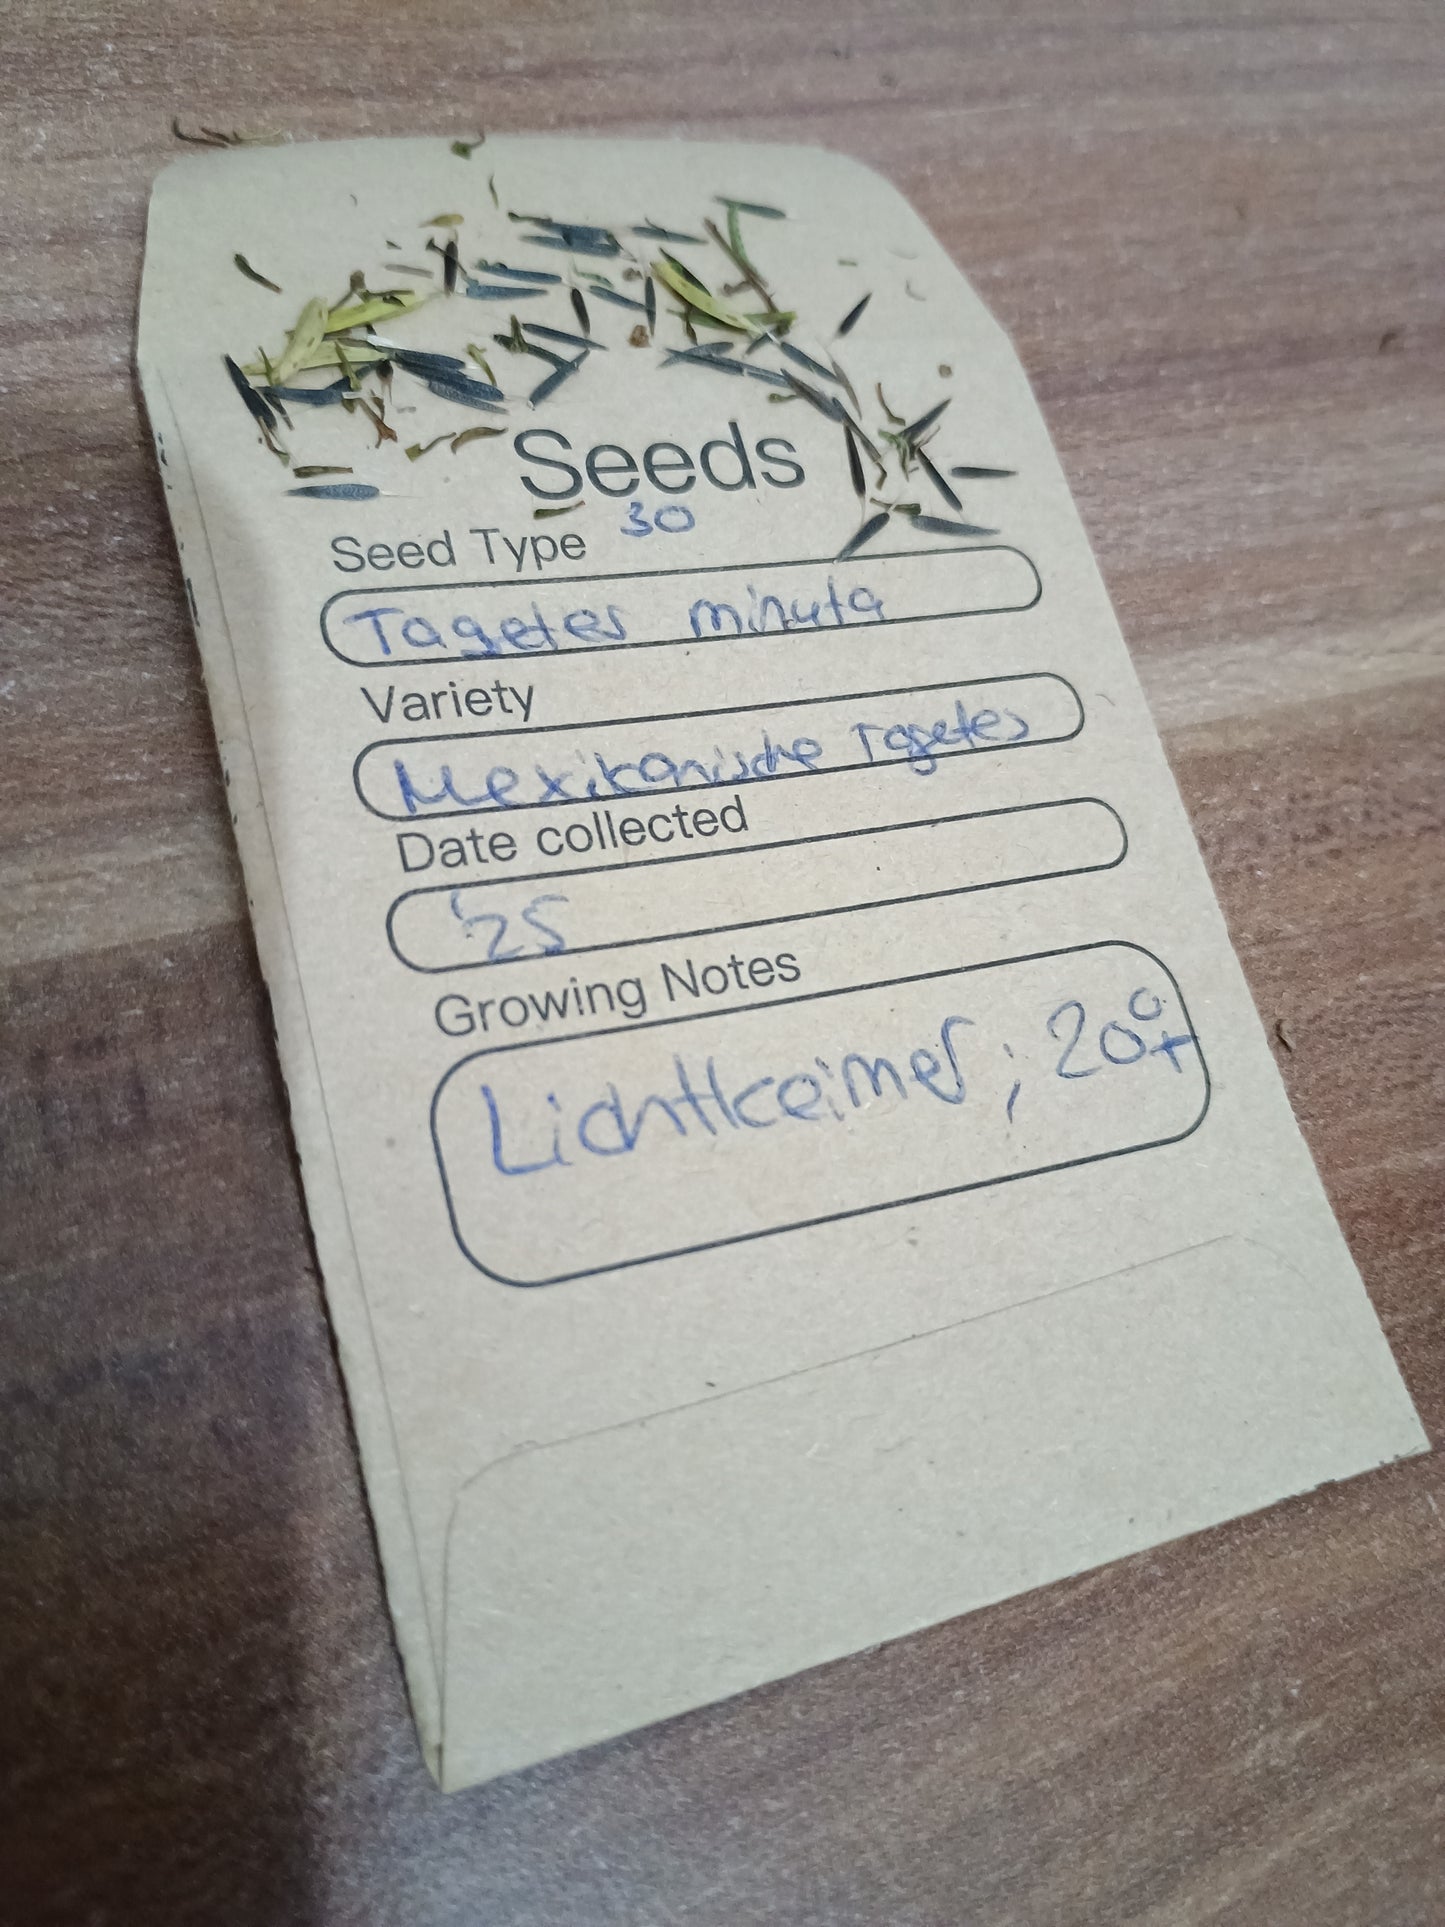 Seeds
30
Seed Type
Tagetes minuta
Variety
Mexikanische Tagetes
Date collected
'25
Growing Notes
Lichtkeimer; 20°+